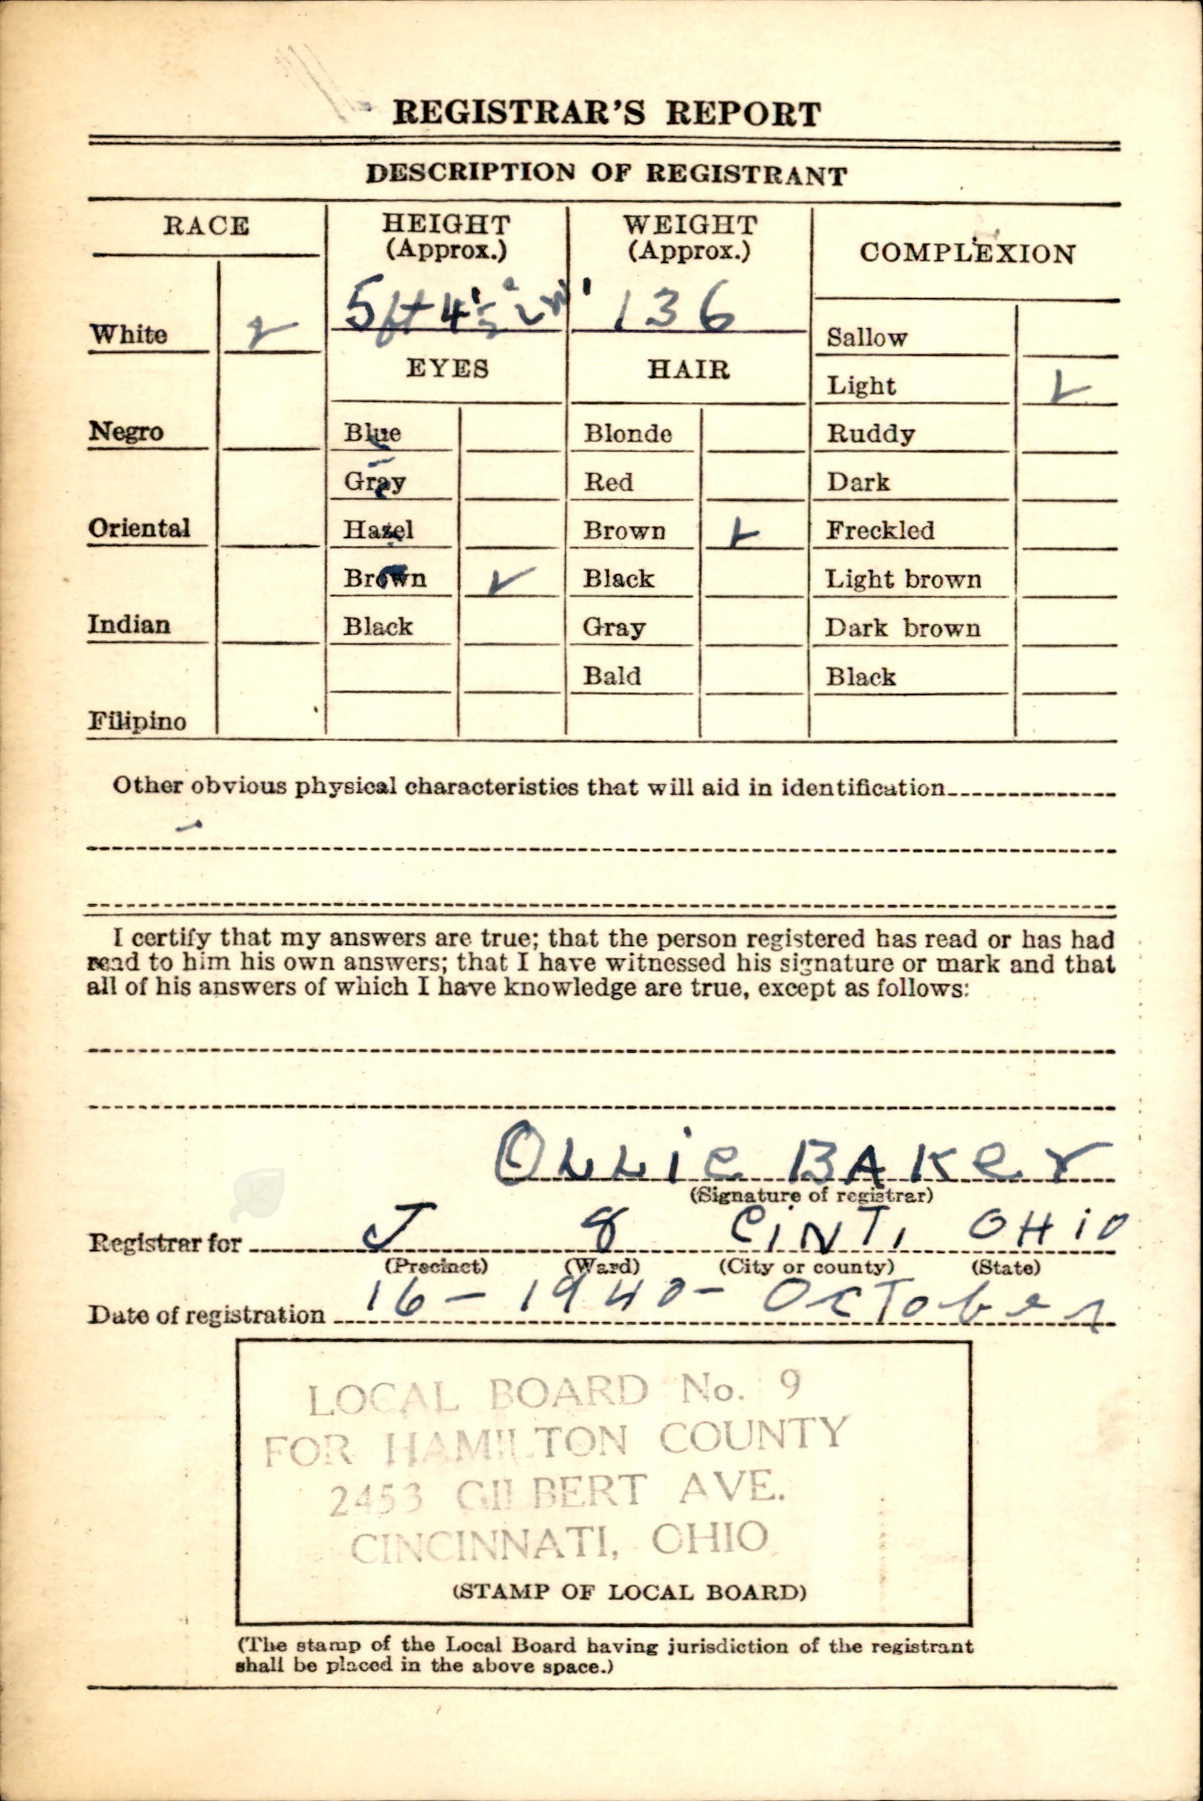 REGISTRAR'S REPORT
DESCRIPTION OF REGISTRANT
RACE
HEIGHT
(Approx.)
WEIGHT
(Approx.)
COMPLEXION
5 ft 4 1/2 in
136
White
Negro
Oriental
Indian
Filipino
EYES
Blue
Gray
Hazel
Brown
Black
HAIR
Blonde
Red
Brown
Black
Gray
Bald
Sallow
Light
Ruddy
Dark
Freckled
Light brown
Dark brown
Black
Other obvious physical characteristics that will aid in identification
I certify that my answers are true; that the person registered has read or has had
read to him his own answers; that I have witnessed his signature or mark and that
all of his answers of which I have knowledge are true, except as follows:
OLLie BAKer
(Signature of registrar)
Registrar for J 8 CiNTi OHiO
(Precinct) (Ward) (City or county) (State)
Date of registration 16 - 1940 - October
LOCAL BOARD No. 9
FOR HAMILTON COUNTY
2453 GILBERT AVE.
CINCINNATI, OHIO
(STAMP OF LOCAL BOARD)
(The stamp of the Local Board having jurisdiction of the registrant
shall be placed in the above space.)